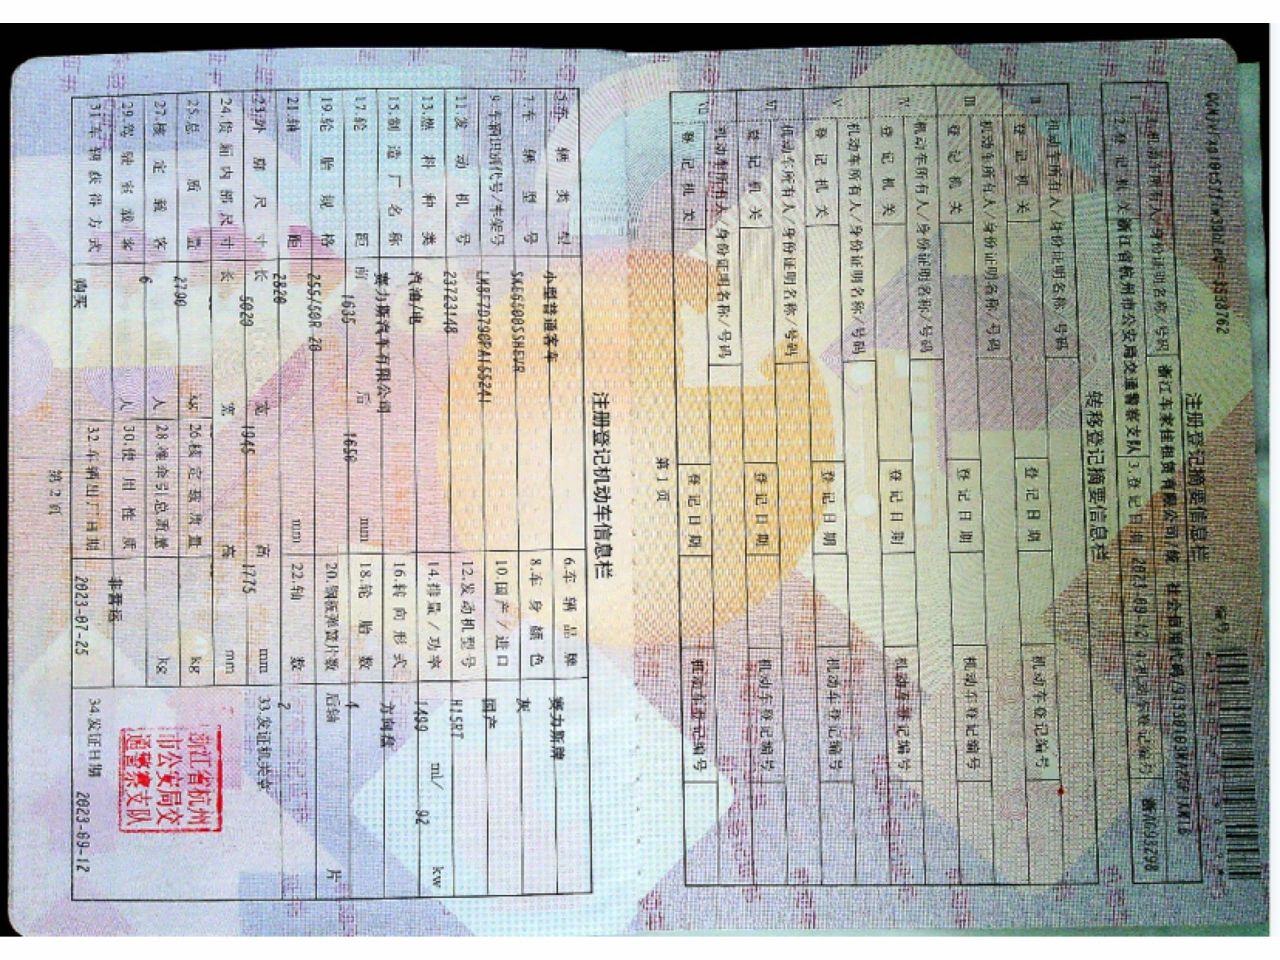 注册登记摘要信息栏
编号
1.机动车所有人/身份证明名称/号码 浙江车家佳租赁有限公司/统一社会信用代码/
2.登记机关 浙江省杭州市公安局交通警察支队 3.登记日期 2023-09-12 4.机动车登记编号
转移登记摘要信息栏
II 机动车所有人/身份证明名称/号码
登记机关 登记日期 机动车登记编号
III 机动车所有人/身份证明名称/号码
登记机关 登记日期 机动车登记编号
IV 机动车所有人/身份证明名称/号码
登记机关 登记日期 机动车登记编号
V 机动车所有人/身份证明名称/号码
登记机关 登记日期 机动车登记编号
VI 机动车所有人/身份证明名称/号码
登记机关 登记日期 机动车登记编号
VII 机动车所有人/身份证明名称/号码
登记机关 登记日期 机动车登记编号
第 1 页
注册登记机动车信息栏
5.车辆类型 小型普通客车 6.车辆品牌 赛力斯牌
7.车辆型号 8.车身颜色 灰
9.车辆识别代号/车架号 10.国产/进口 国产
11.发动机号 23723148 12.发动机型号 H15RT
13.燃料种类 汽油/电 14.排量/功率 1499 ml/ 92 kw
15.制造厂名称 赛力斯汽车有限公司 16.转向形式 方向盘
17.轮距 前 1635 后 1650 mm 18.轮胎数 4
19.轮胎规格 255/50R 20 20.钢板弹簧片数 后轴 片
21.轴距 2820 mm 22.轴数 2
23.外廓尺寸 长 5020 宽 1945 高 1775 mm 33.发证机关章
24.货厢内部尺寸 长 宽 高 mm
浙江省杭州
市公安局交
通警察支队
25.总质量 2700 kg 26.核定载质量 kg
27.核定载客 6 人 28.准牵引总质量 kg
29.驾驶室载客 人 30.使用性质 非营运
31.车辆获得方式 购买 32.车辆出厂日期 2023-07-25 34.发证日期 2023-09-12
第 2 页